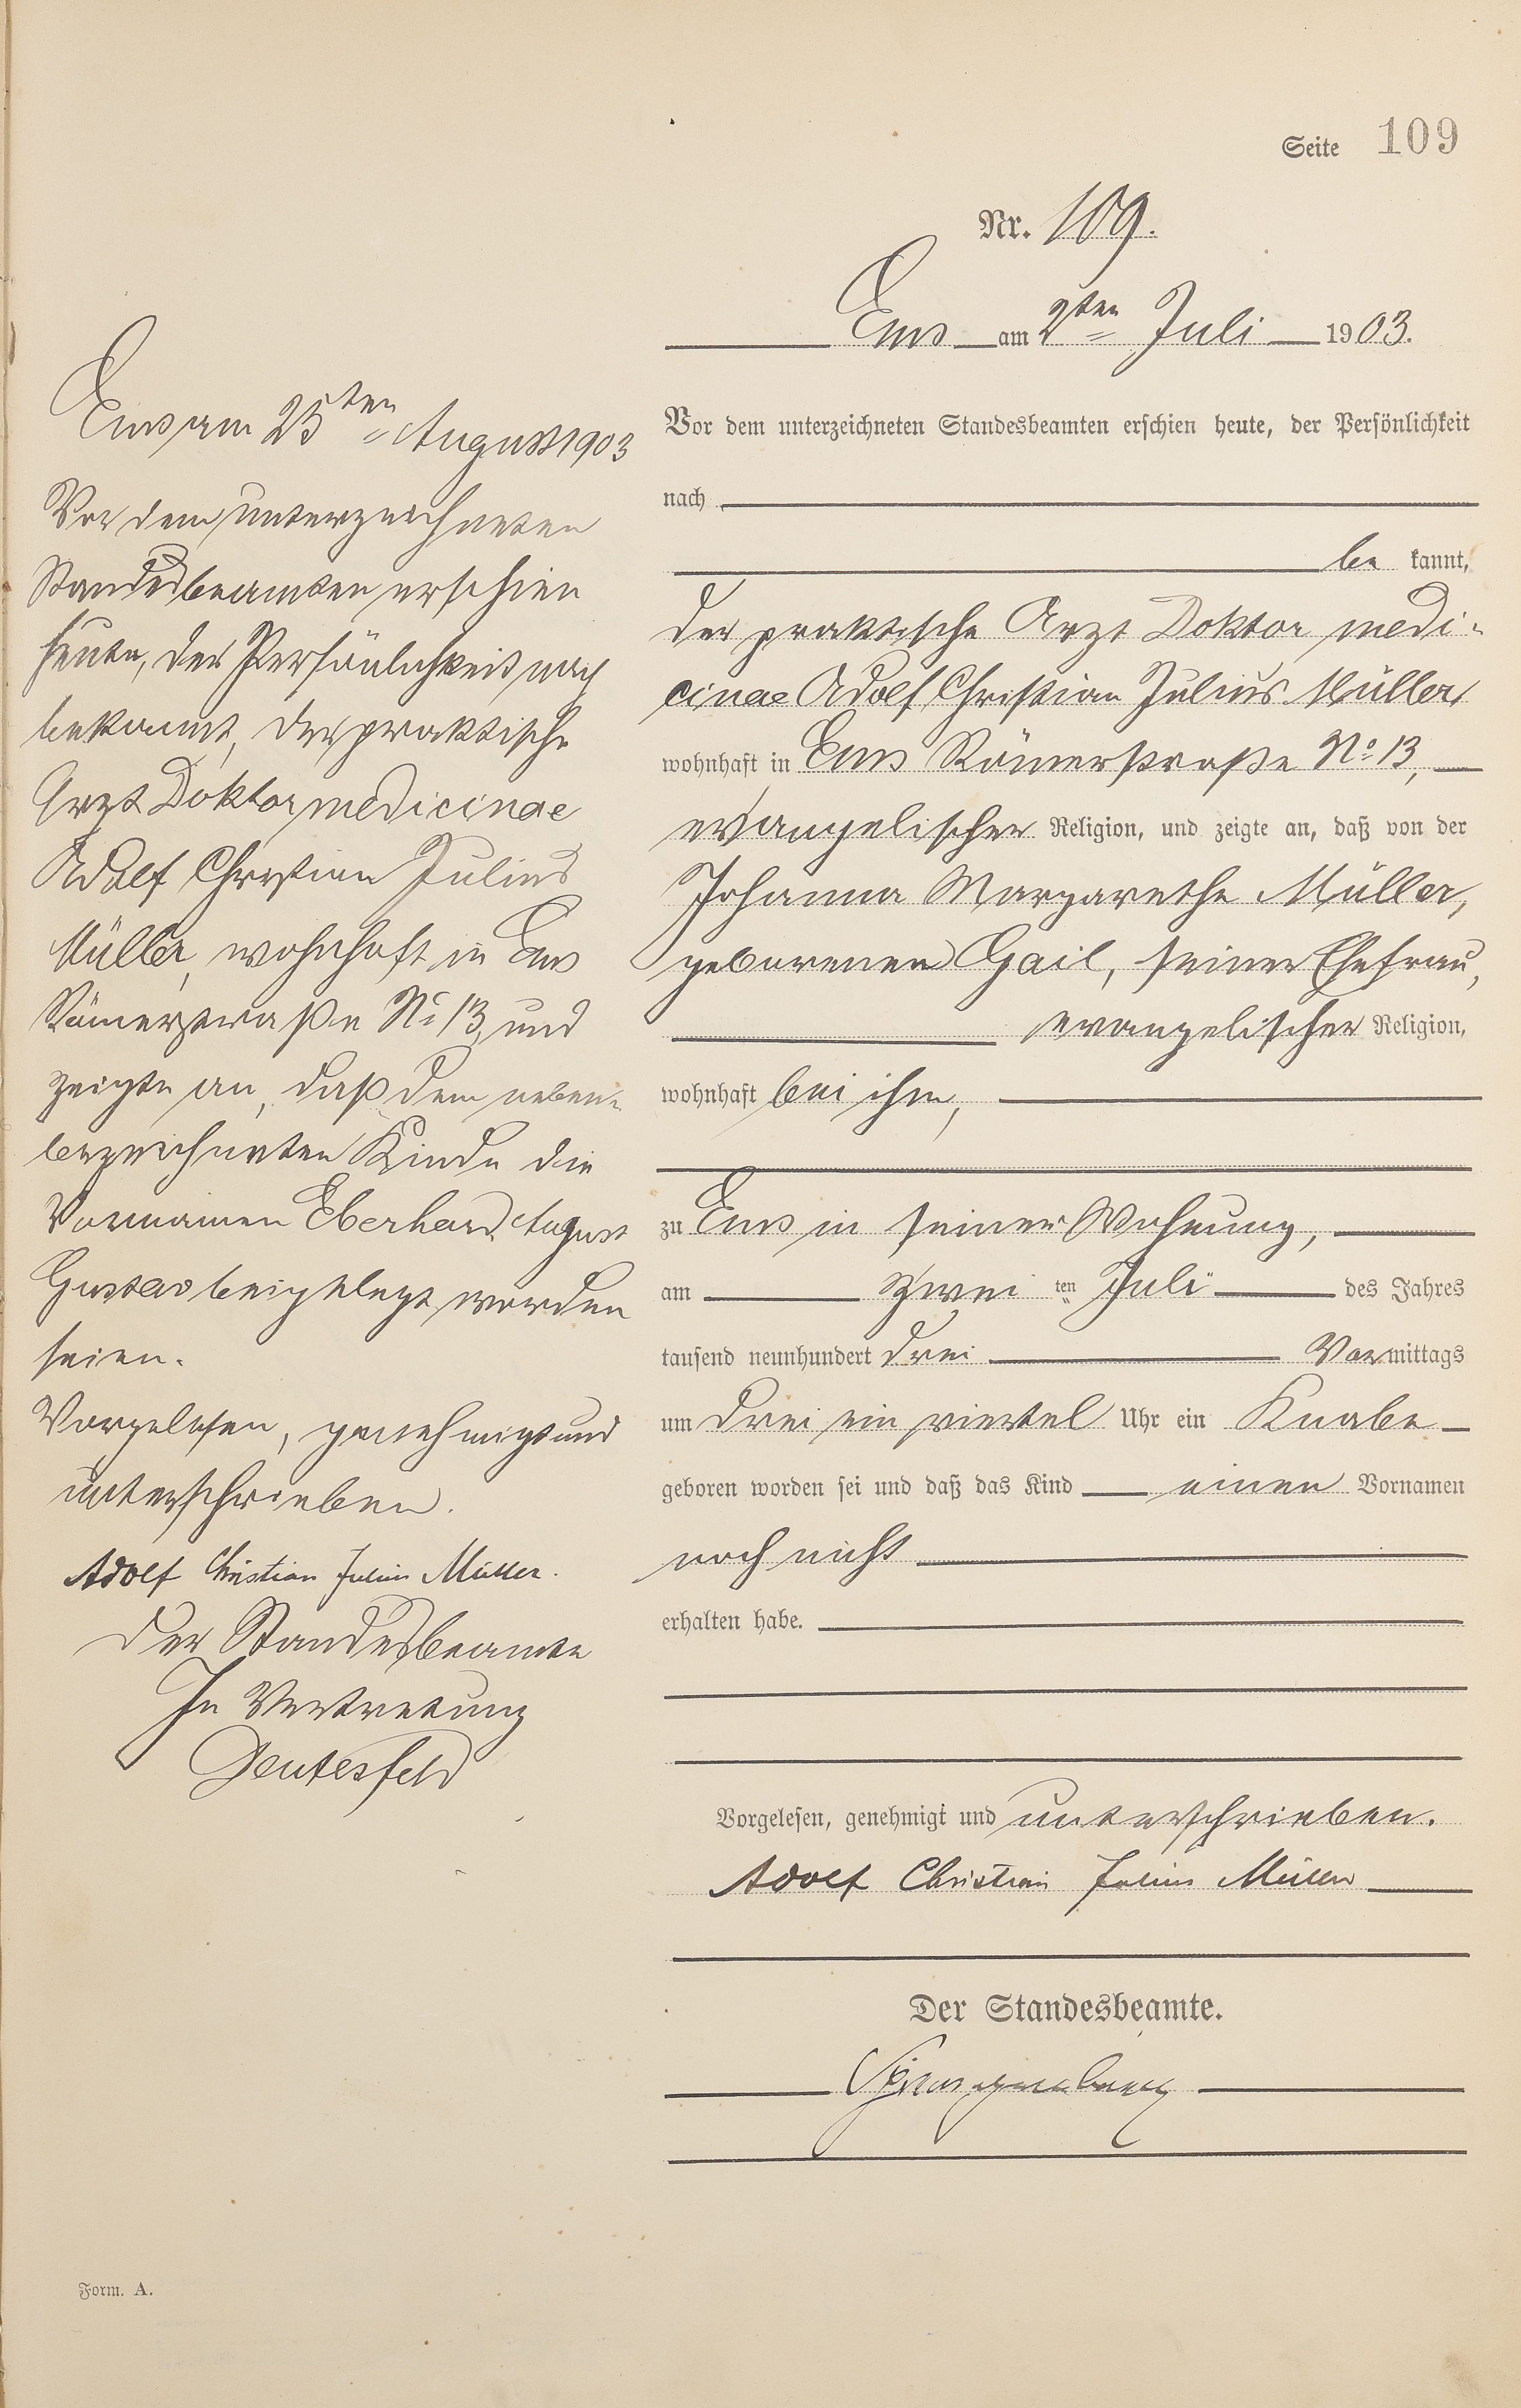 Seite 109
Nr. 109.
Ems am 2ten Juli 1903.
Vor dem unterzeichneten Standesbeamten erschien heute, der Persönlichkeit
nach
be kannt,
der praktische Arzt Doktor medi-
cinae Adolf Christian Julius Müller,
wohnhaft in Ems Römerstraße No 13,
evangelischer Religion, und zeigte an, daß von der
Johanna Margarethe Müller,
geborenen Gail, seiner Ehefrau,
evangelischer Religion,
wohnhaft bei ihm,
zu Ems in seiner Wohnung,
am zwei ten Juli des Jahres
tausend neunhundert drei Vormittags
um drei ein viertel Uhr ein Knabe
geboren worden sei und daß das Kind einen Vornamen
noch nicht
erhalten habe.
Vorgelesen, genehmigt und unterschrieben.
Adolf Christian Julius Müller
Der Standesbeamte.
Ems am 25ten August 1903
Vor dem unterzeichneten
Standesbeamten erschien
heute, der Persönlichkeit nach
bekannt, der praktische
Arzt Doktor medicinae
Adolf Christian Julius
Müller, wohnhaft in Ems
Römerstraße No 13, und
zeigte an, daß dem neben-
bezeichneten Kinde die
Vornamen Eberhard August
Gustav beigelegt worden
seien.
Vorgelesen, genehmigt und
unterschrieben.
Adolf Christian Julius Müller.
Der Standesbeamte
In Vertretung
Deutesfeld
Form. A.